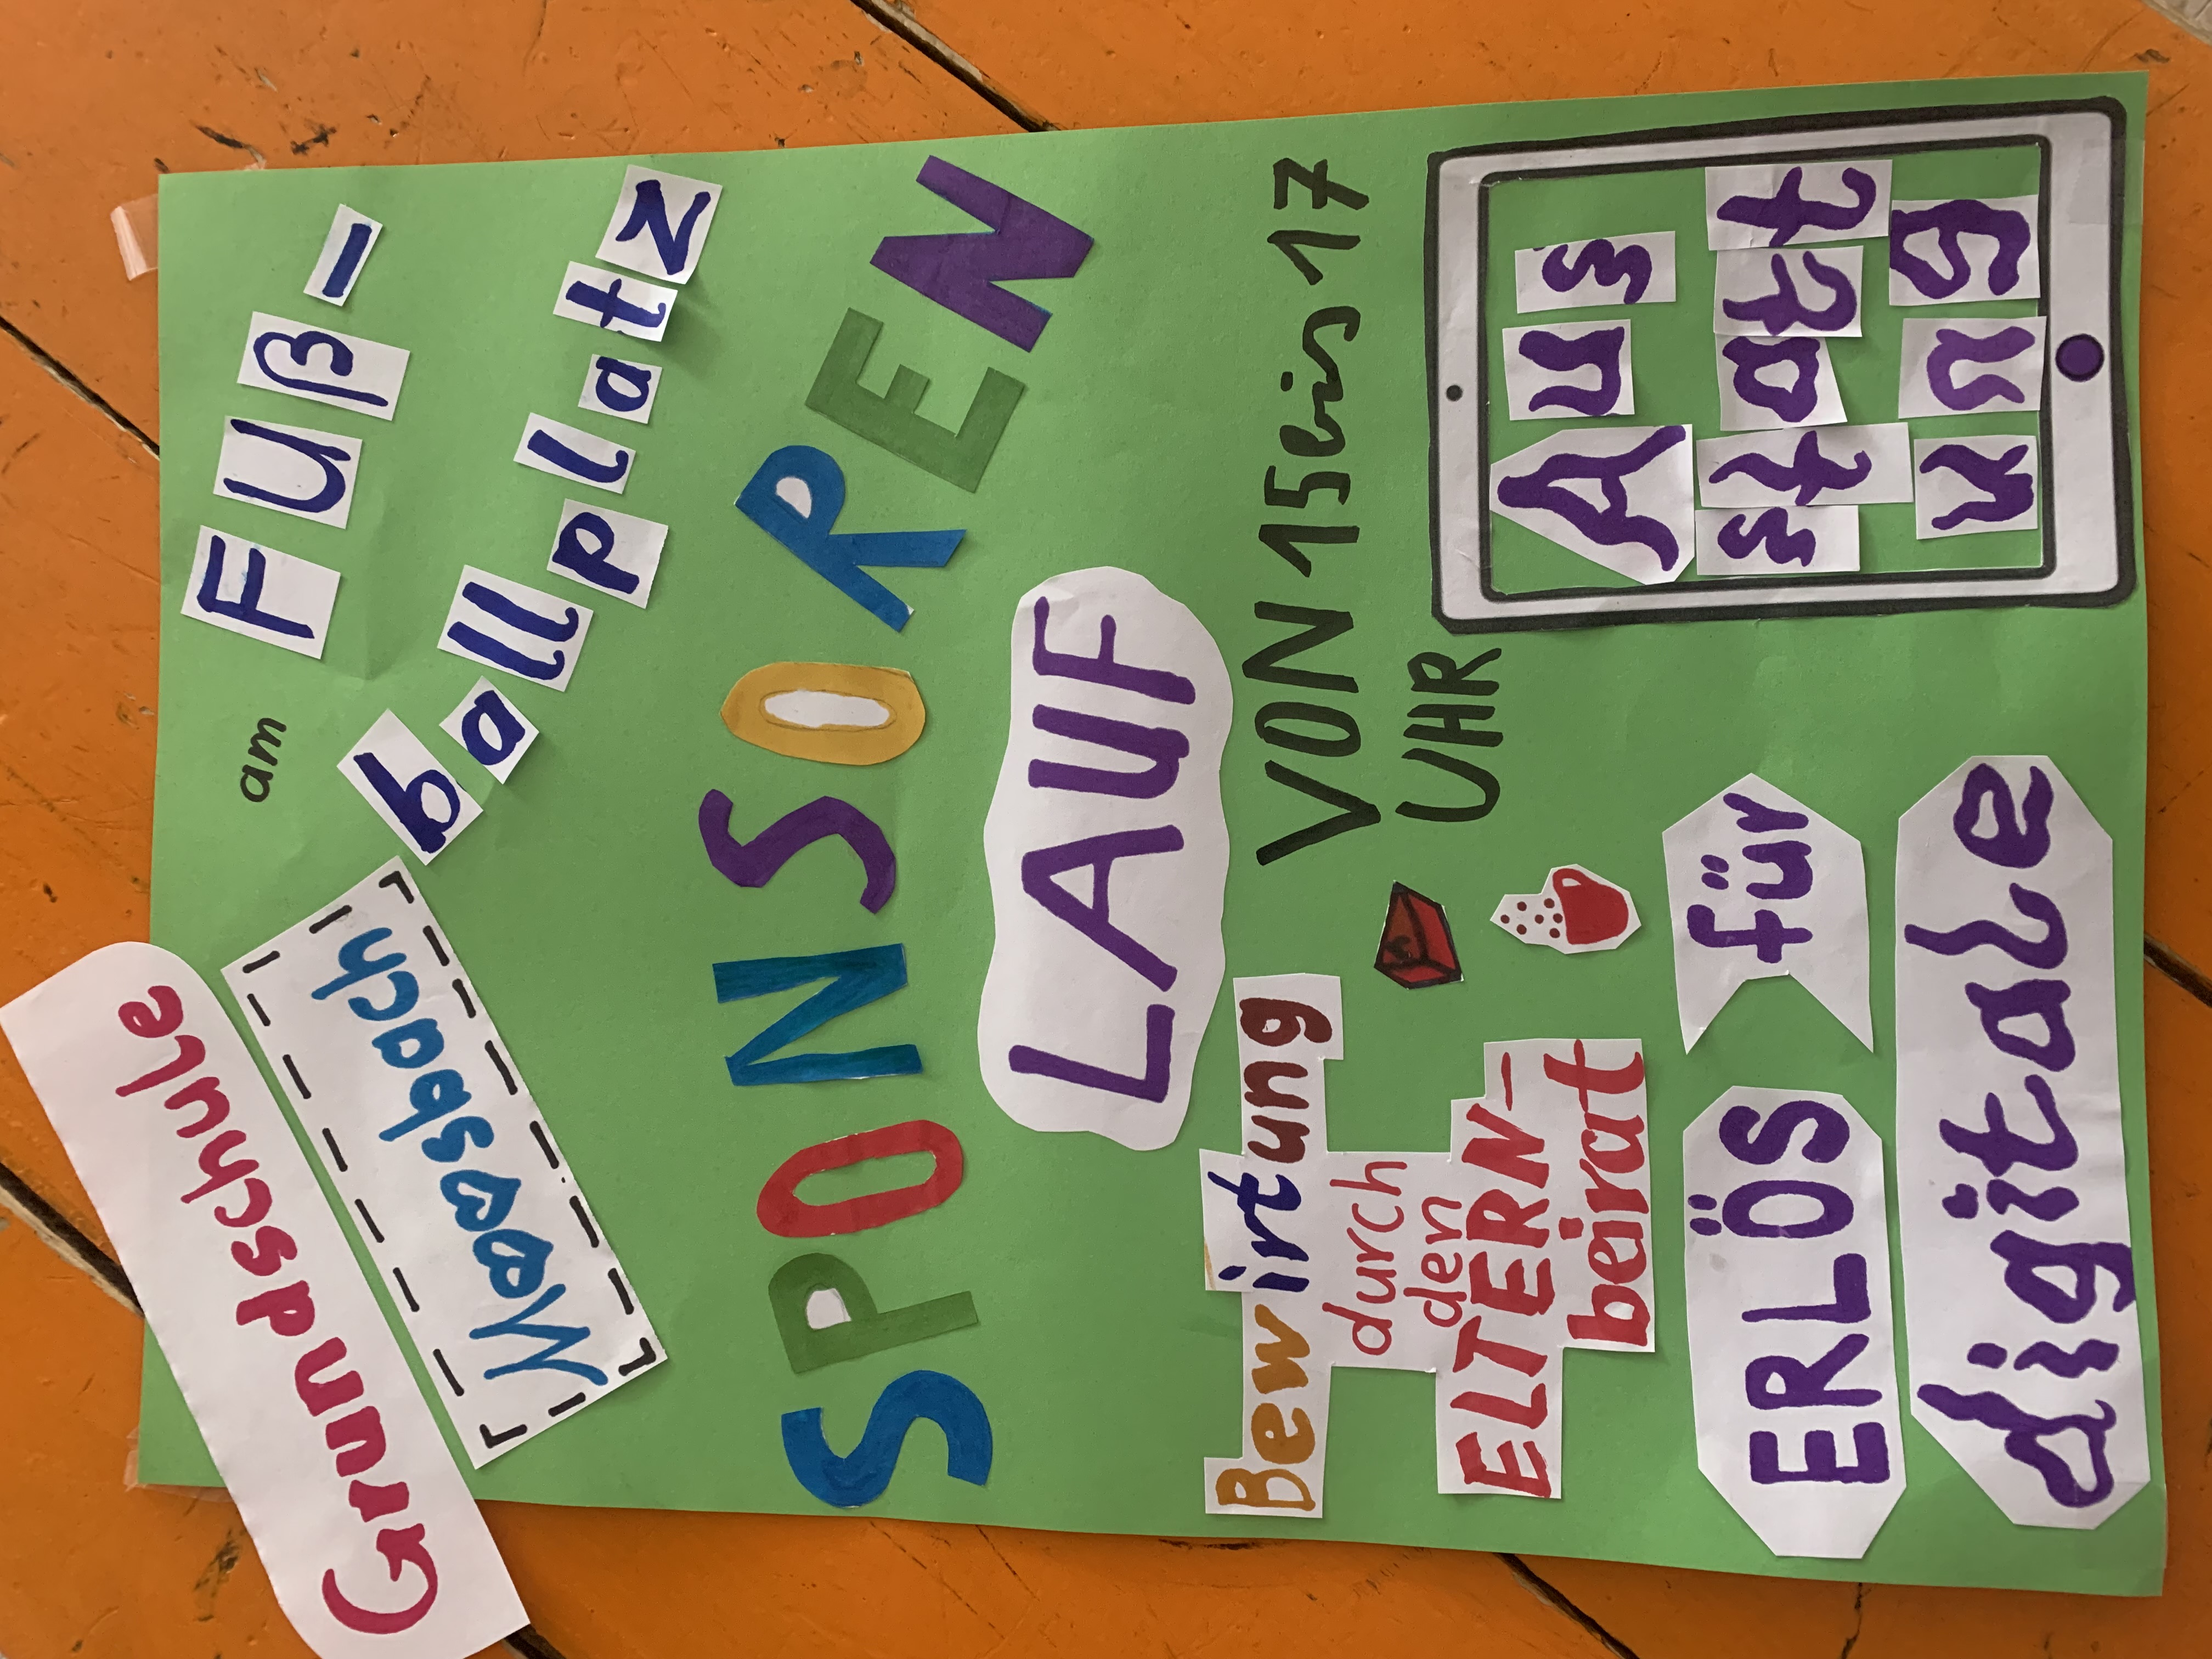 Grundschule
Moosbach
am
Fuß-
ballplatz
SPONSOREN
LAUF
VON 15 bis 17
UHR
Bewirtung
durch
den
ELTERN-
beirat
ERLÖS für
digitale
Aus
statt
ung